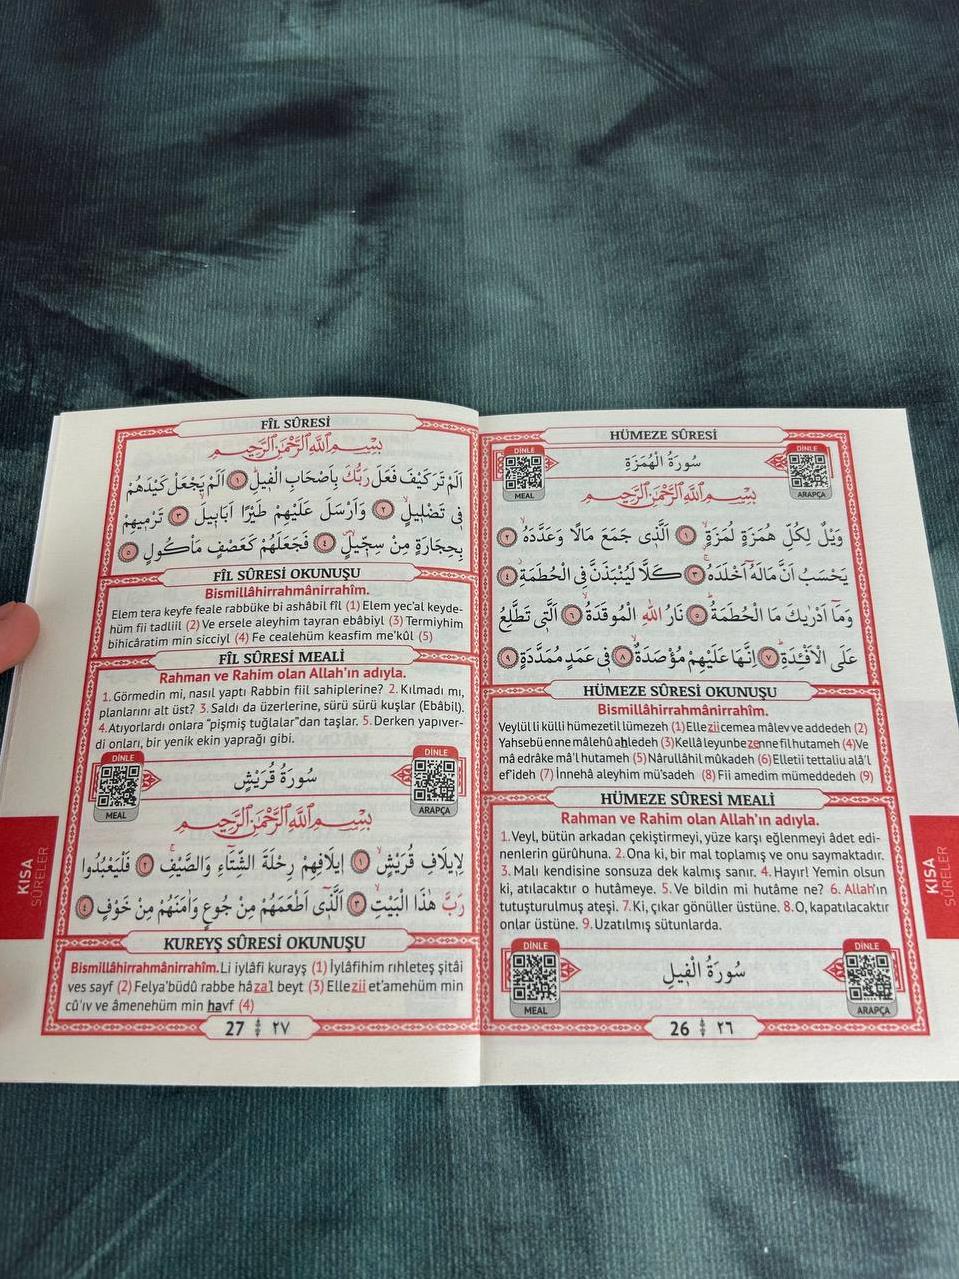 HÜMEZE SÛRESİ
DİNLE
MEAL
سُورَةُ الْهُمَزَةِ
DİNLE
ARAPÇA
بِسْمِ اللّٰهِ الرَّحْمٰنِ الرَّحِيمِ
وَيْلٌ لِكُلِّ هُمَزَةٍ لُمَزَةٍ ﴿١﴾ اَلَّذ۪ى جَمَعَ مَالًا وَعَدَّدَهُ ﴿٢﴾
يَحْسَبُ اَنَّ مَالَهُٓ اَخْلَدَهُ ﴿٣﴾ كَلَّا لَيُنْبَذَنَّ فِى الْحُطَمَةِ ﴿٤﴾
وَمَٓا اَدْرٰيكَ مَا الْحُطَمَةُ ﴿٥﴾ نَارُ اللّٰهِ الْمُوقَدَةُ ﴿٦﴾ اَلَّت۪ى تَطَّلِعُ
عَلَى الْاَفْـِٔدَةِ ﴿٧﴾ اِنَّهَا عَلَيْهِمْ مُؤْصَدَةٌ ﴿٨﴾ ف۪ى عَمَدٍ مُمَدَّدَةٍ ﴿٩﴾
HÜMEZE SÛRESİ OKUNUŞU
Bismillâhirrahmânirrahîm.
Veylül li külli hümezetil lümezeh (1) Ellezii cemea mâlev ve addedeh (2)
Yahsebü enne mâlehû ahledeh (3) Kellâ leyunbezenne fil hutameh (4) Ve
mâ edrâke mâ'l hutameh (5) Nârullâhil mûkadeh (6) Elletii tettaliu alâ'l
ef'ideh (7) İnnehâ aleyhim mü'sadeh (8) Fii amedim mümeddedeh (9)
HÜMEZE SÛRESİ MEALİ
Rahman ve Rahim olan Allah'ın adıyla.
1. Veyl, bütün arkadan çekiştirmeyi, yüze karşı eğlenmeyi âdet edi-
nenlerin gürûhuna. 2. Ona ki, bir mal toplamış ve onu saymaktadır.
3. Malı kendisine sonsuza dek kalmış sanır. 4. Hayır! Yemin olsun
ki, atılacaktır o hutâmeye. 5. Ve bildin mi hutâme ne? 6. Allah'ın
tutuşturulmuş ateşi. 7. Ki, çıkar gönüller üstüne. 8. O, kapatılacaktır
onlar üstüne. 9. Uzatılmış sütunlarda.
DİNLE
MEAL
سُورَةُ الْف۪يلِ
DİNLE
ARAPÇA
26 ٢٦
KISA
SÛRELER
FÎL SÛRESİ
بِسْمِ اللّٰهِ الرَّحْمٰنِ الرَّحِيمِ
اَلَمْ تَرَ كَيْفَ فَعَلَ رَبُّكَ بِاَصْحَابِ الْف۪يلِ ﴿١﴾ اَلَمْ يَجْعَلْ كَيْدَهُمْ
ف۪ى تَضْل۪يلٍ ﴿٢﴾ وَاَرْسَلَ عَلَيْهِمْ طَيْرًا اَبَاب۪يلَ ﴿٣﴾ تَرْم۪يهِمْ
بِحِجَارَةٍ مِنْ سِجّ۪يلٍ ﴿٤﴾ فَجَعَلَهُمْ كَعَصْفٍ مَاْكُولٍ ﴿٥﴾
FÎL SÛRESİ OKUNUŞU
Bismillâhirrahmânirrahîm.
Elem tera keyfe feale rabbüke bi ashâbil fîl (1) Elem yec'al keyde-
hüm fii tadliil (2) Ve ersele aleyhim tayran ebâbiyl (3) Termiyhim
bihicâratim min sicciyl (4) Fe cealehüm keasfim me'kûl (5)
FÎL SÛRESİ MEALİ
Rahman ve Rahim olan Allah'ın adıyla.
1. Görmedin mi, nasıl yaptı Rabbin fiil sahiplerine? 2. Kılmadı mı,
planlarını alt üst? 3. Saldı da üzerlerine, sürü sürü kuşlar (Ebâbîl).
4. Atıyorlardı onlara "pişmiş tuğlalar"dan taşlar. 5. Derken yapıver-
di onları, bir yenik ekin yaprağı gibi.
DİNLE
MEAL
سُورَةُ قُرَيْشٍ
DİNLE
ARAPÇA
بِسْمِ اللّٰهِ الرَّحْمٰنِ الرَّحِيمِ
لِا۪يلَافِ قُرَيْشٍ ﴿١﴾ ا۪يلَافِهِمْ رِحْلَةَ الشِّتَٓاءِ وَالصَّيْفِ ﴿٢﴾ فَلْيَعْبُدُوا
رَبَّ هٰذَا الْبَيْتِ ﴿٣﴾ اَلَّذ۪ٓى اَطْعَمَهُمْ مِنْ جُوعٍ وَاٰمَنَهُمْ مِنْ خَوْفٍ ﴿٤﴾
KUREYŞ SÛRESİ OKUNUŞU
Bismillâhirrahmânirrahîm. Li iylâfi kurayş (1) İylâfihim rıhleteş şitâi
ves sayf (2) Felya'büdû rabbe hâzal beyt (3) Ellezii et'amehüm min
cû'ıv ve âmenehüm min havf (4)
27 ٢٧
KISA
SÛRELER